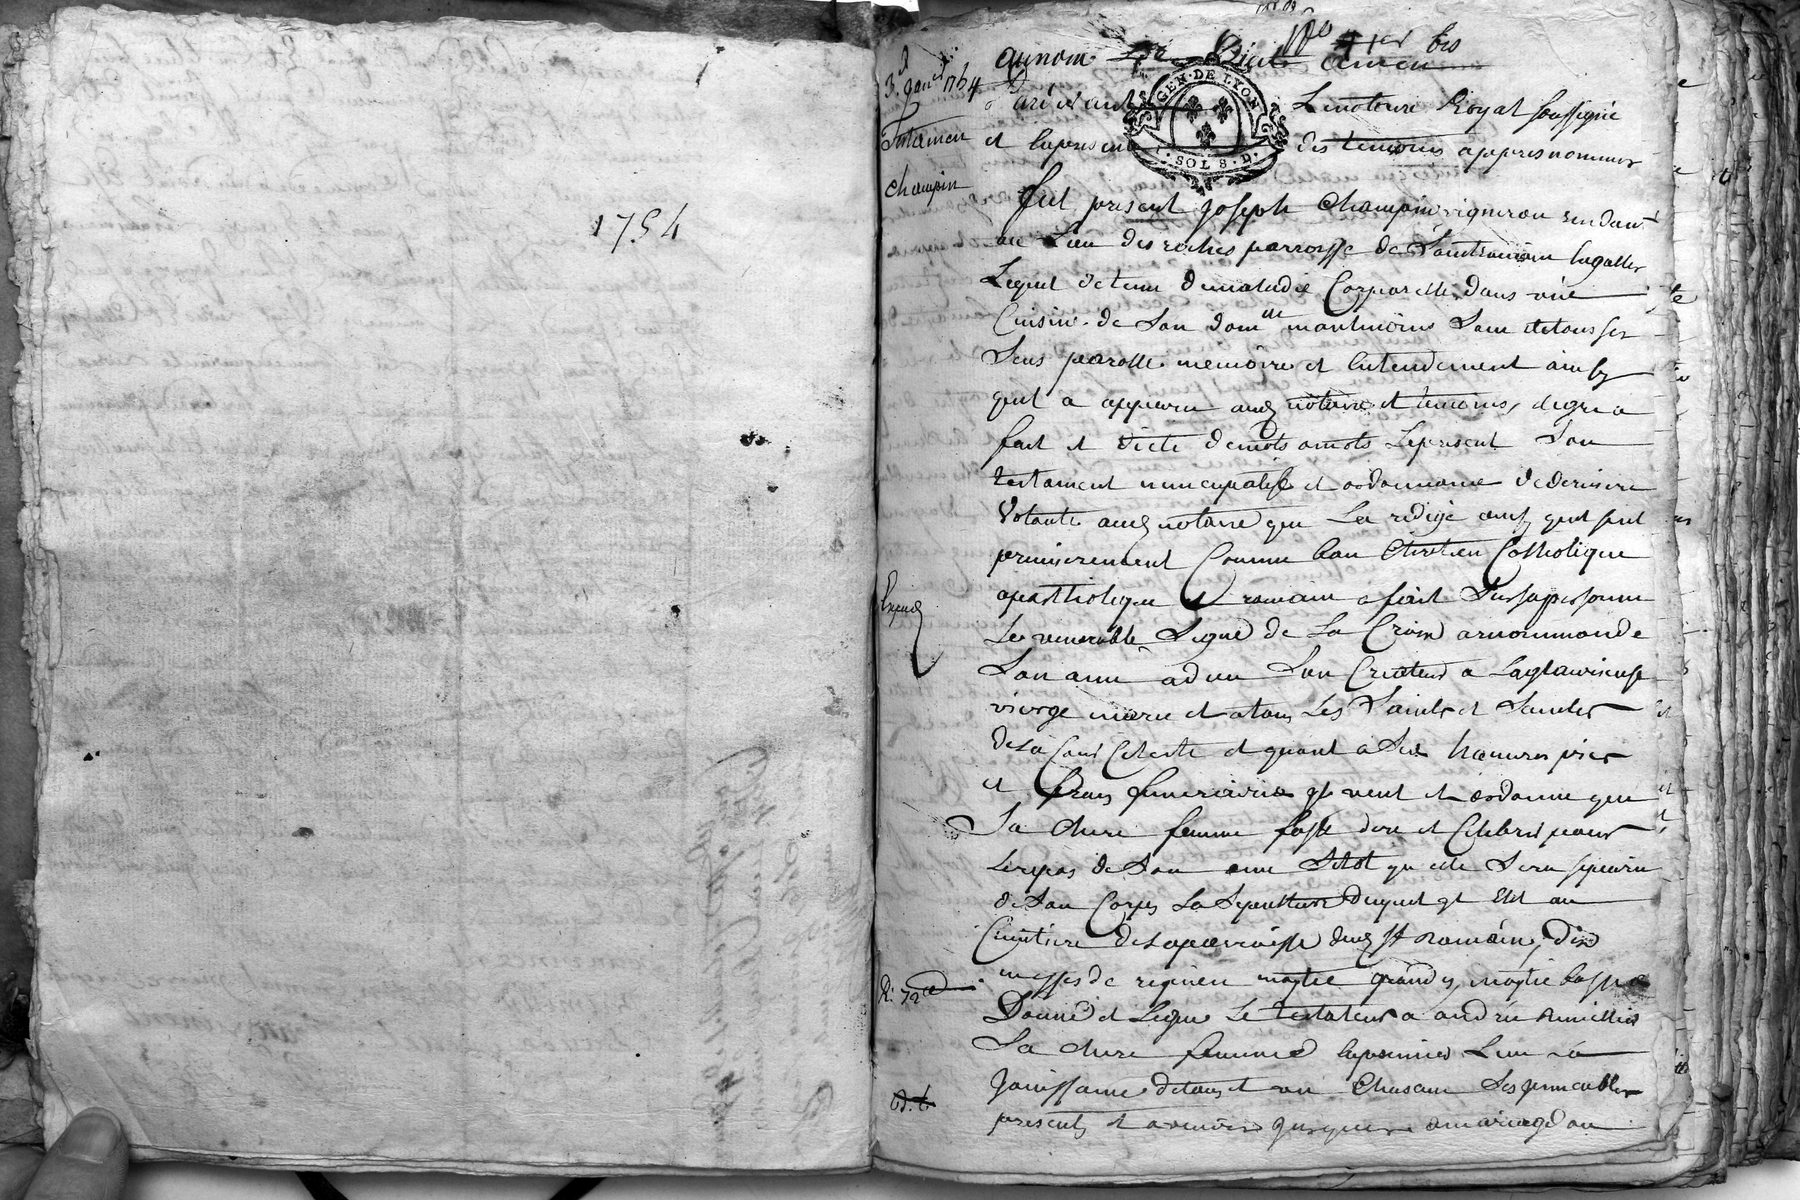 1754
1er bis
au nom de Dieu amen
3e Janer 1754
Testament
champin
Pardevant Le notaire Royal soussigné
GEN. DE LYON
SOLS 8. D.
et En presence des temoins appres nommes
fut present Joseph Champin vigneron residant
au Lieu des roches parroisse de Saint romain Lagaller
Lequel detenu de maladie Corporelle dans une
Cuisine de Son domlle neantmoins Sain de tous ses
Sens parolle memoire et Entendement ainsy
quil a apparu audt notaire et temoins, de gré a
fait et dicté de mots a mots Le present Son
testament nuncupatif et ordonnance de derniere
Volonté audt notaire qui La redigé ainsy quil suit
premierement Comme bon Chretien Catholique
apostholique & romain a fait Sur sa personne
Le venerable Signe de La Croix a recommandé
Expedié
Son ame a dieu Son Createur a La glorieuse
vierge marie et a tous Les Saints et Saintes
de La Cour Celeste et quant a Ses honneurs
et frais funeraires qt veut et ordonne que
Sa chere femme fasse dire et Celebrer pour
Le repos de Son ame Sitot qu elle Sera separée
de Son Corps La Sepulture duquel qt Elit au
Cimetiere de La parroisse dudt St Romain, dix
messes de requiem moytié grandes moytié basses
R: 72
Donne et Legue Le testateur a andrée
Sa chere femme La jouissance de tous et un Chacun Ses immeubles
presents et a venir